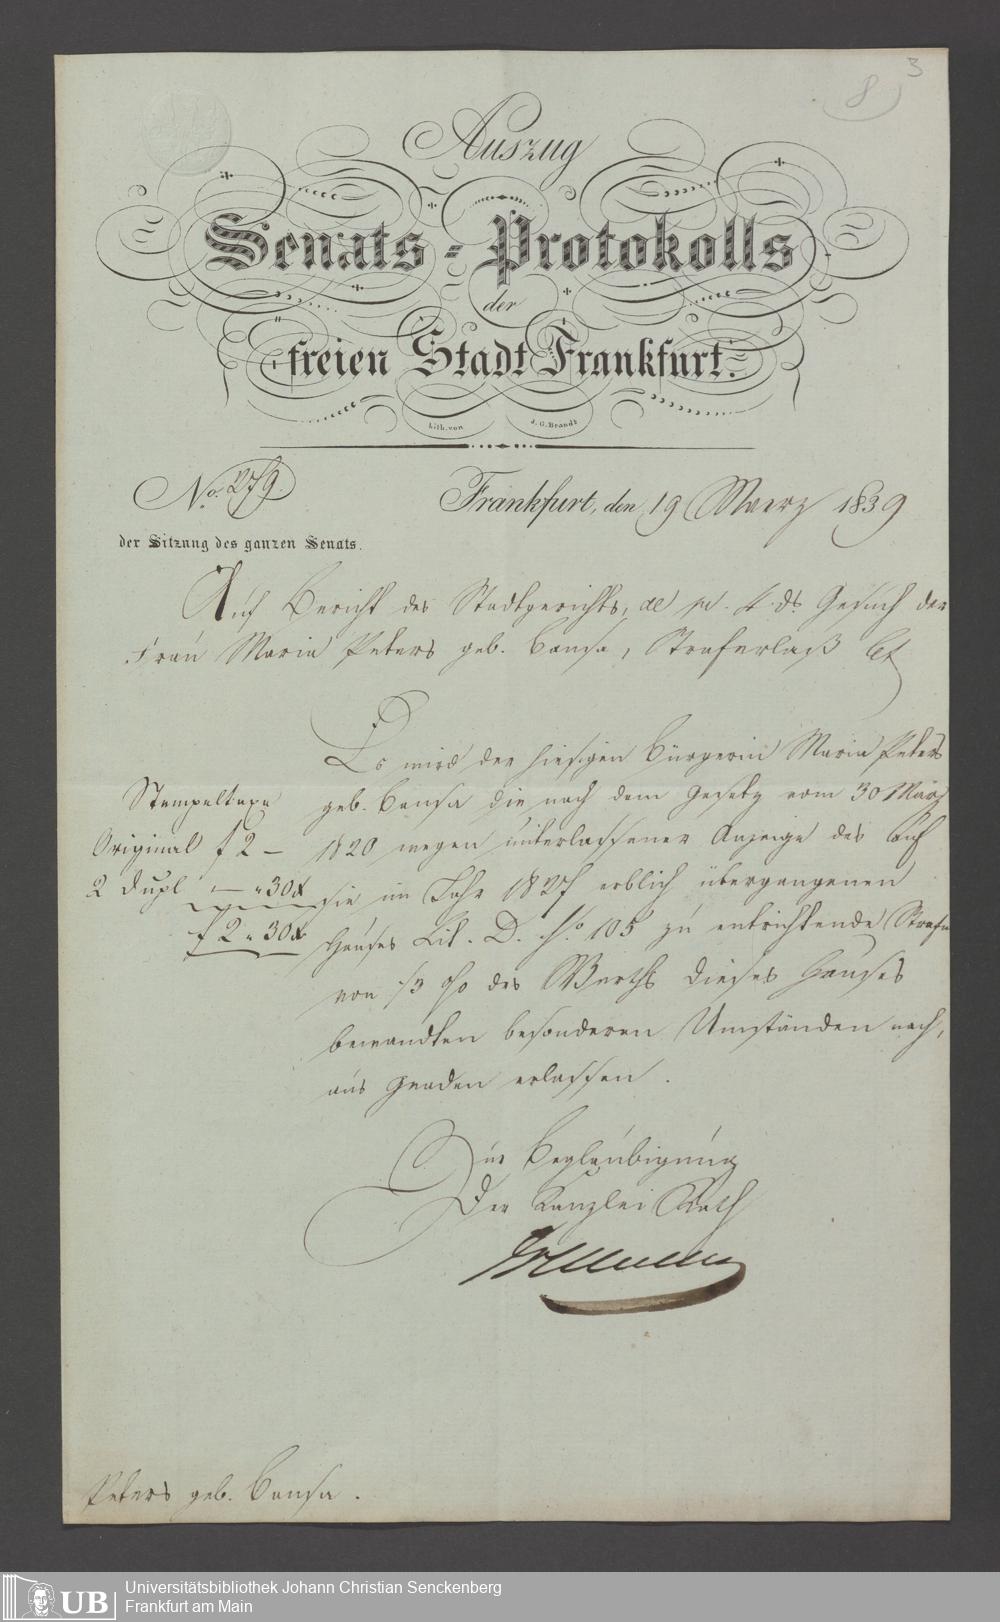 3
8
Auszug
Senats-Protokolls
der
freien Stadt Frankfurt.
lith. von J. G. Brandt
No. 279.
Frankfurt, den 19 Maerz 1839
der Sitzung des ganzen Senats.
Auf Bericht des Stadtgerichts, de pr. 4. ds. Gesuch der
Frau Maria Peters geb. Bansa, Straferlaß bt
Es wird der hiesigen Bürgerin Maria Peters
geb. Bansa die nach dem Gesetz vom 30 März
1820 wegen unterlassener Anzeige des auf
sie im Jahr 1827 erblich übergangenen
Hauses Lit. D. No. 105 zu entrichtende Strafe
von 1/3 % des Werths dieses Hauses
bewandten besonderen Umständen nach,
aus Gnaden erlassen.
Stempeltaxe
Original f 2 –
2 Dupl – „ 30 x
f 2 „ 30 x
Zur Beglaubigung
Der Kanzlei Rath
Peters geb. Bansa.
UB
Universitätsbibliothek Johann Christian Senckenberg
Frankfurt am Main